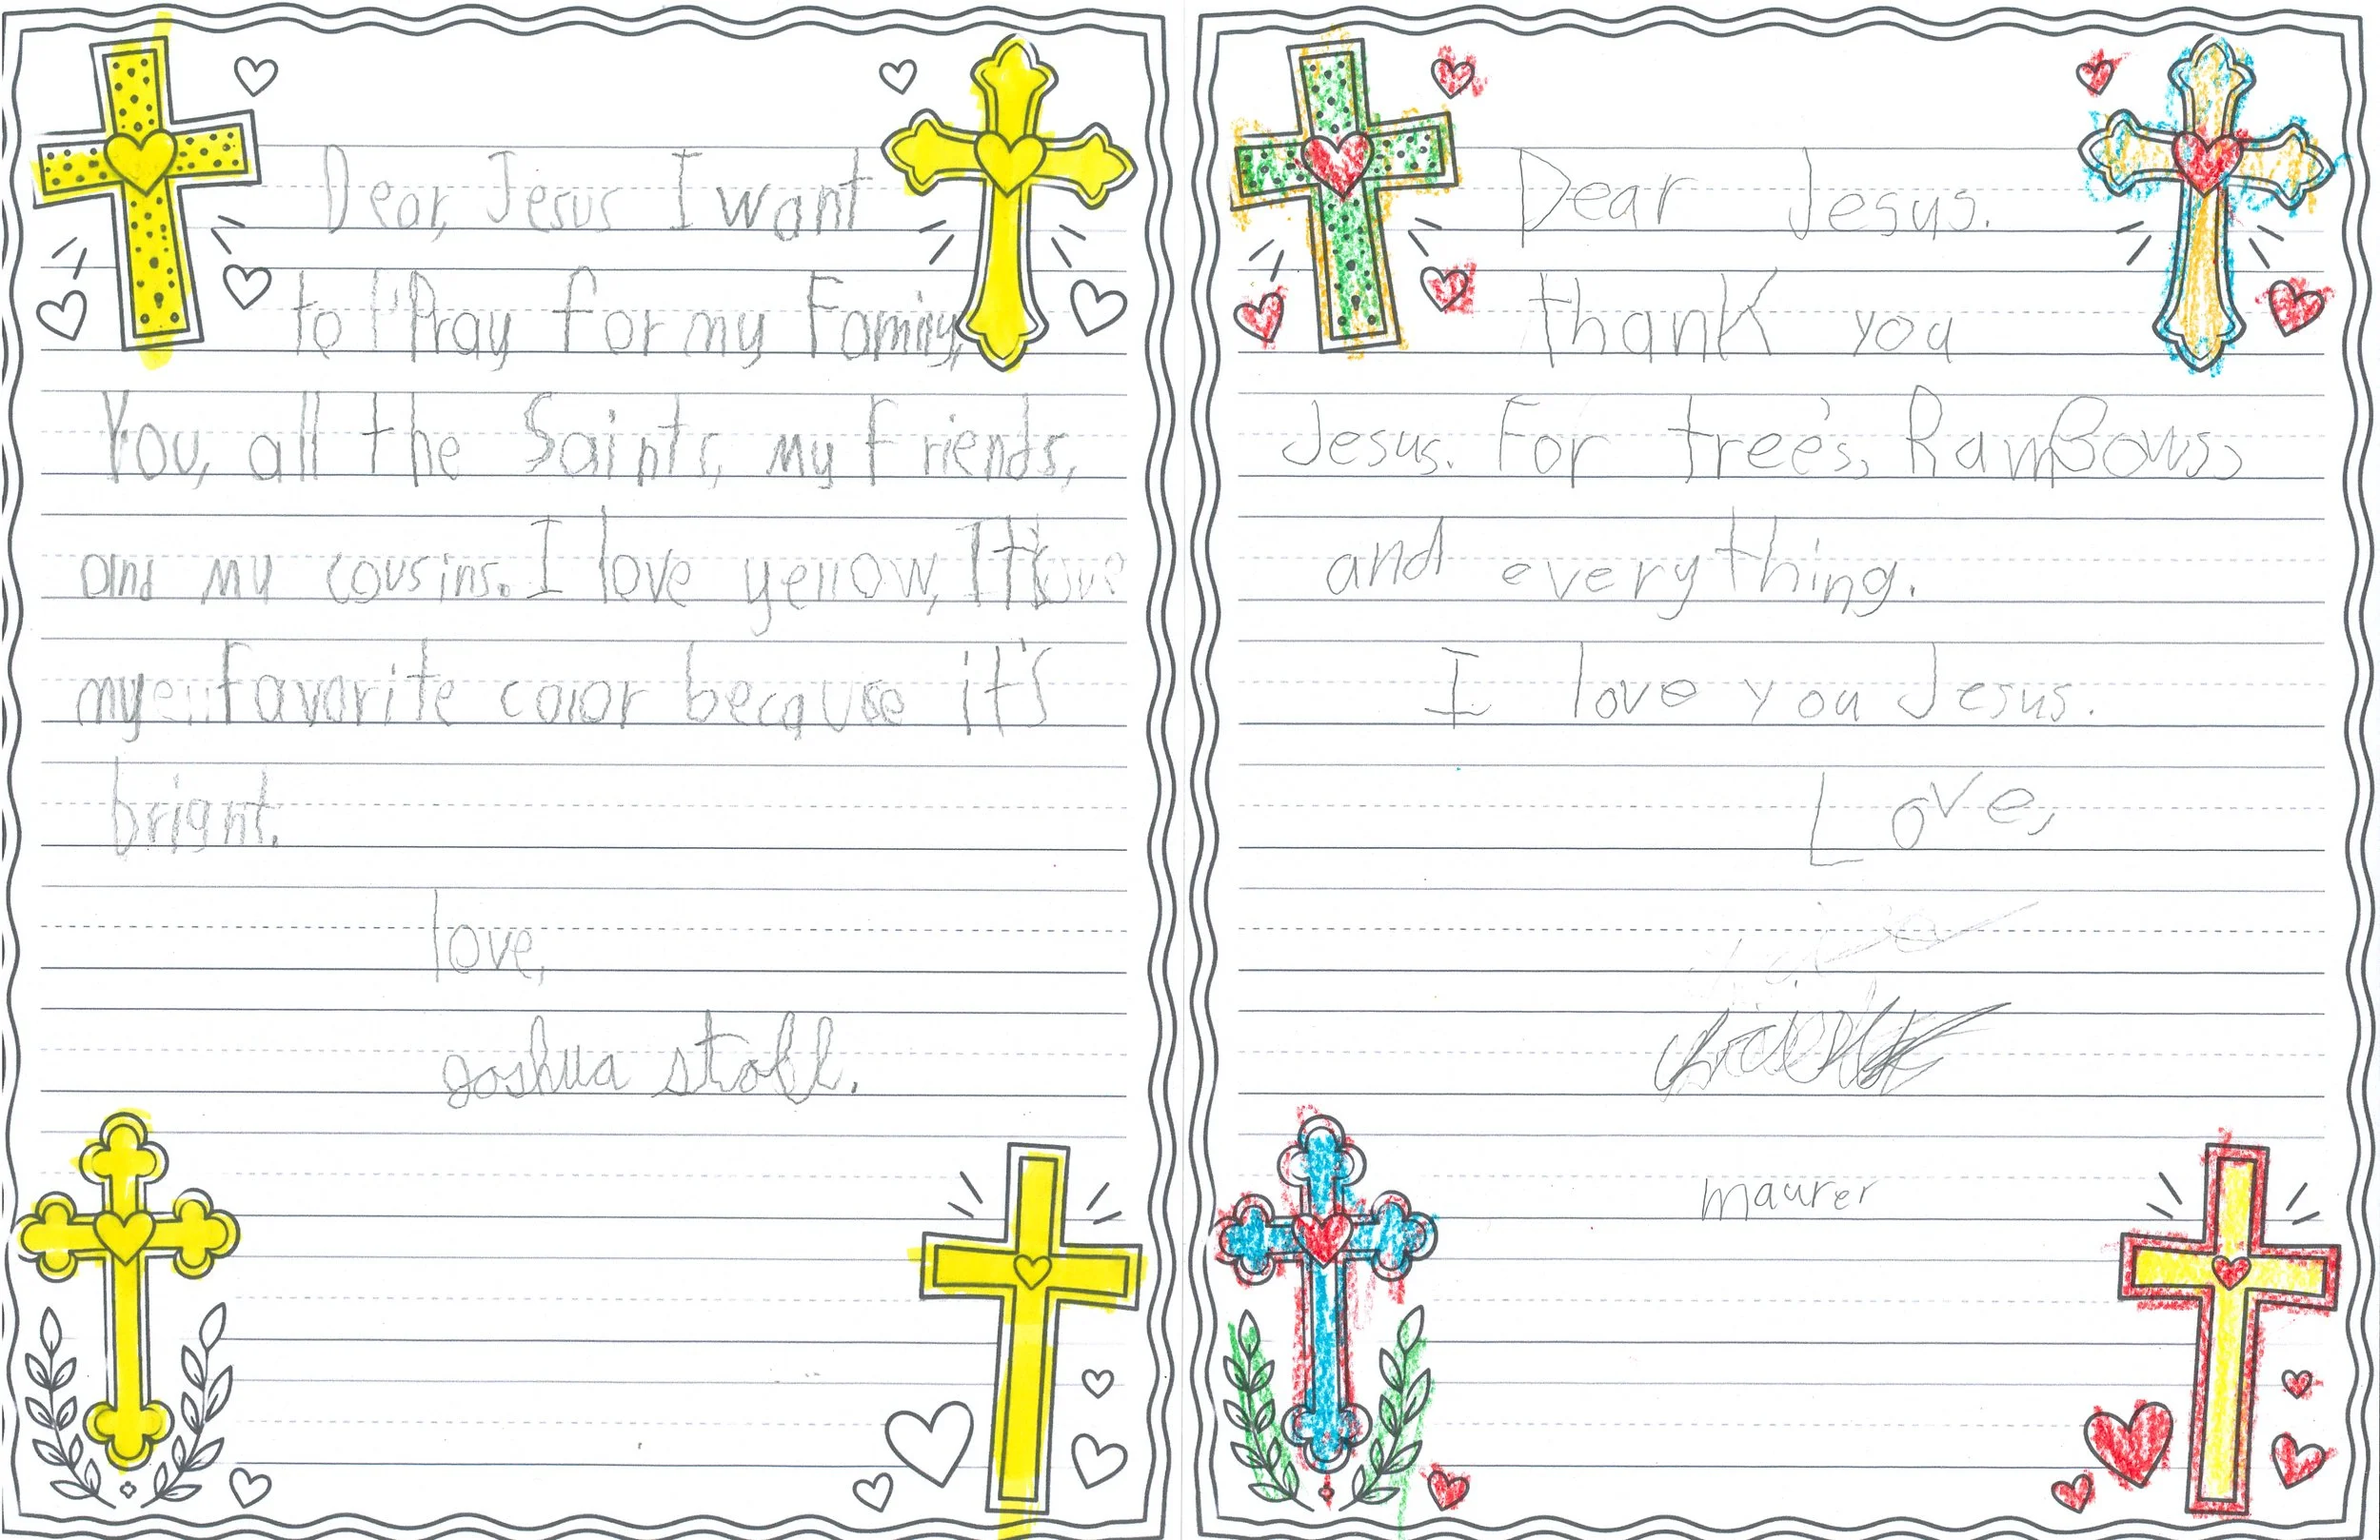 Dear, Jesus I want
to Pray for my Family,
You, all the Saints, my Friends,
and my cousins. I love yellow, It
my favorite color because it's
bright.
love,
Joshua stoll.
Dear Jesus.
thank you
Jesus. For tree's, RainBows,
and everything.
I love you Jesus.
Love,
maurer